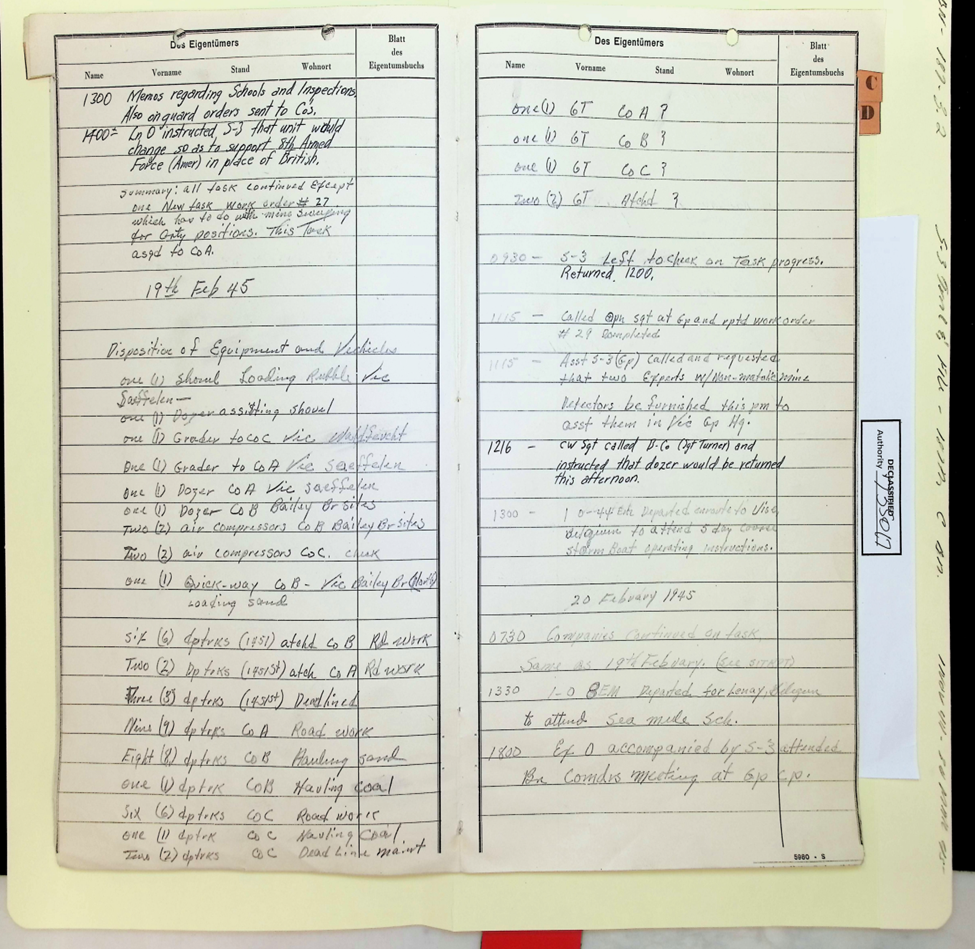 Des Eigentümers
Blatt des Eigentumsbuchs
Name Vorname Stand Wohnort
1300 Memos regarding Schools and Inspections.
Also on guard orders sent to Co's.
1400 - Ln O instructed S-3 that unit would
change so as to support 8th Armed
Force (Amer) in place of British.
Summary: all task continued Except
one New task work order # 27
which have to do with mine sweeping
for positions. This Task
asgd to Co A.
19th Feb 45
Disposition of Equipment and Vechicles
one (1) Shovel Loading Rubble Vic
Saeffelen —
one (1) Dozer assisting shovel
one (1) Grader to CoC Vic Waldfeucht
one (1) Grader to CoA Vic Saeffelen
one (1) Dozer CoA Vic Saeffelen
one (1) Dozer CoB Bailey Br sites
Two (2) air compressors CoB Bailey Br sites
Two (2) air compressors CoC.
one (1) Quick-way CoB - Vic Bailey Br
Loading sand
Six (6) dptrks (1451) atchd CoB Rd work
Two (2) Dptrks (1451st) atch CoA Rd work
Three (3) dptrks (1451st) Deadlined
Nine (9) dptrks CoA Road work
Eight (8) dptrks CoB Hauling sand
one (1) dptrk CoB Hauling coal
Six (6) dptrks CoC Road work
one (1) dptrk CoC Hauling Coal
Two (2) dptrks CoC Dead Line maint
Des Eigentümers
Blatt des Eigentumsbuchs
Name Vorname Stand Wohnort
one (1) GT CoA ?
one (1) GT CoB ?
one (1) GT CoC ?
Two (2) GT Atchd ?
0930 - S-3 Left to check on Task progress.
Returned 1200.
1115 - Called Opn sgt at Gp and rptd work order
# 29 completed
1115 - Asst S-3 (Gp) called and requested
that two Experts w/Non-metalic mine
Detectors be furnished this pm to
asst them in Vic Gp Hq.
1216 - CW Sgt called D-Co (Sgt Turner) and
instructed that dozer would be returned
this afternoon.
1300 - 1 O-44 Em Departed enroute to Vise,
Belgium to attend 5 day course
storm Boat operating instructions.
20 February 1945
0730 Companies continued on task
Same as 19th February. (See SITREP)
1330 1-O 8EM Departed for Belgium
to attend Sea mule Sch.
1800 Ex O accompanied by S-3 attended
Bn Comdrs meeting at Gp C.P.
5980 - S
C
D
DECLASSIFIED
Authority 735017